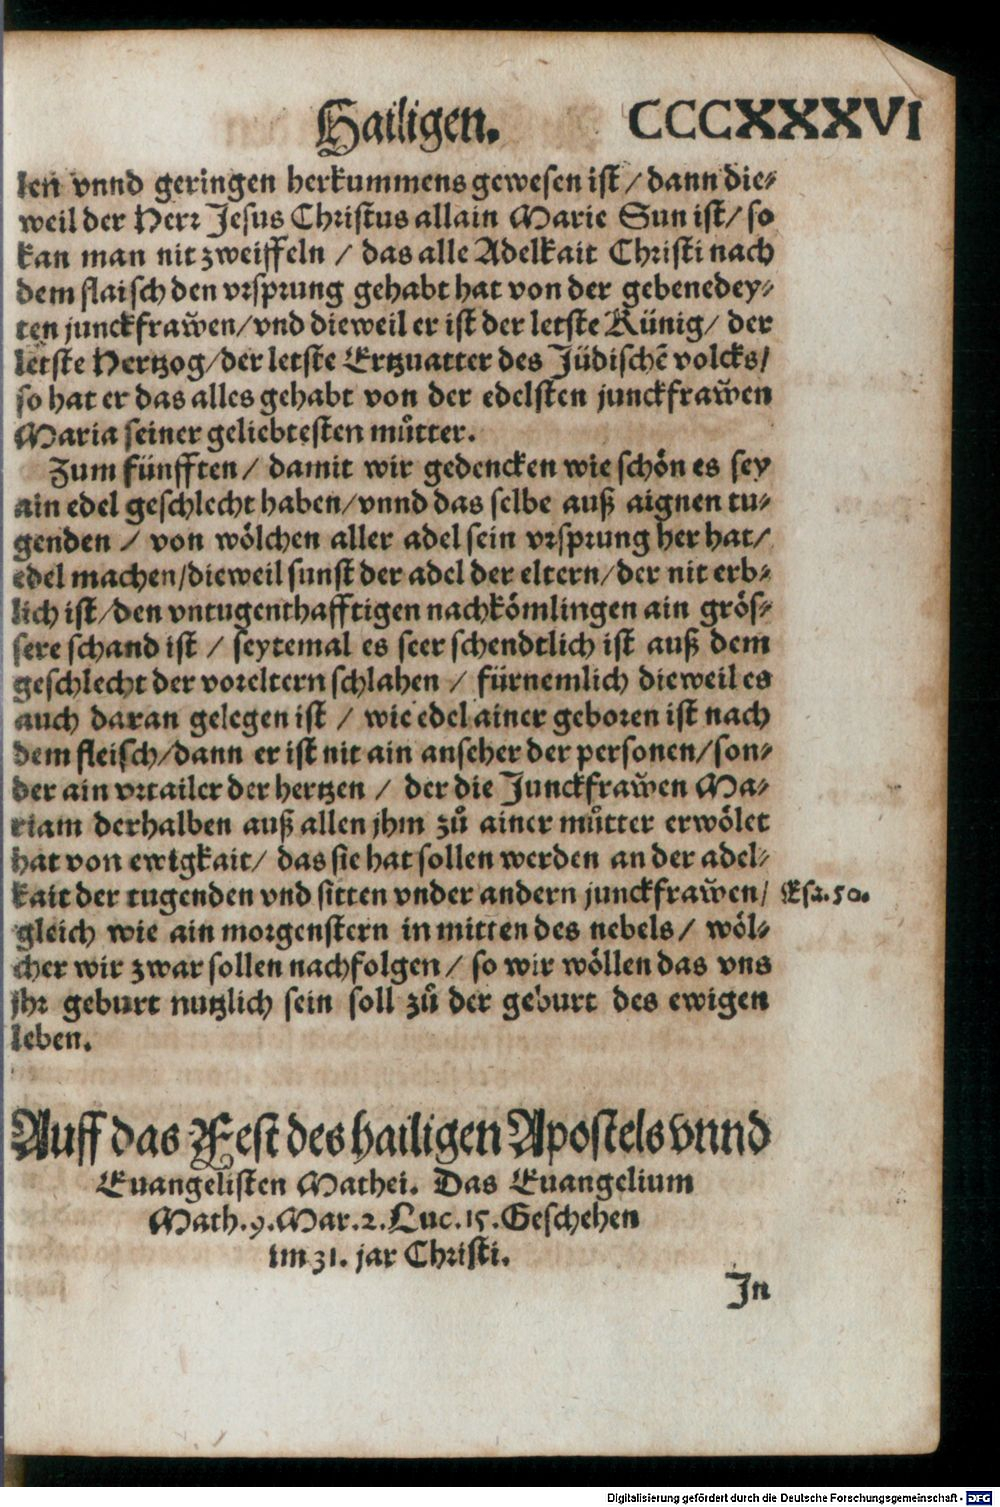 Hailigen. CCCXXXVI
len vnnd geringen herkummens gewesen ist / dann die⸗
weil der Herr Jesus Christus allain Marie Sun ist / so
kan man nit zweiffeln / das alle Adelkait Christi nach
dem flaisch den vrsprung gehabt hat von der gebenedey⸗
ten junckfraw̆en / vnd dieweil er ist der letste Künig / der
letste Hertzog / der letste Ertzuatter des Jüdischē volcks /
so hat er das alles gehabt von der edelsten junckfraw̆en
Maria seiner geliebtesten můtter.
Zum fünfften / damit wir gedencken wie schön es sey
ain edel geschlecht haben / vnnd das selbe auß aignen tu⸗
genden / von wölchen aller adel sein vrsprung her hat /
edel machen / dieweil sunst der adel der eltern / der nit erb⸗
lich ist / den vntugenthafftigen nachkömlingen ain grös⸗
sere schand ist / seytemal es seer schendtlich ist auß dem
geschlecht der voreltern schlahen / fürnemlich dieweil es
auch daran gelegen ist / wie edel ainer geboren ist nach
dem fleisch / dann er ist nit ain anseher der personen / son⸗
der ain vrtailer der hertzen / der die Junckfraw̆en Ma⸗
riam derhalben auß allen jhm zů ainer můtter erwölet
hat von ewigkait / das sie hat sollen werden an der adel⸗
kait der tugenden vnd sitten vnder andern junckfraw̆en / Esr. 50.
gleich wie ain morgenstern in mitten des nebels / wöl⸗
cher wir zwar sollen nachfolgen / so wir wöllen das vns
jhr geburt nutzlich sein soll zů der geburt des ewigen
leben.
Auff das Fest des hailigen Apostels vnnd
Euangelisten Mathei. Das Euangelium
Math. 9. Mar. 2. Luc. 15. Geschehen
im 31. jar Christi.
In
Digitalisierung gefördert durch die Deutsche Forschungsgemeinschaft - DFG